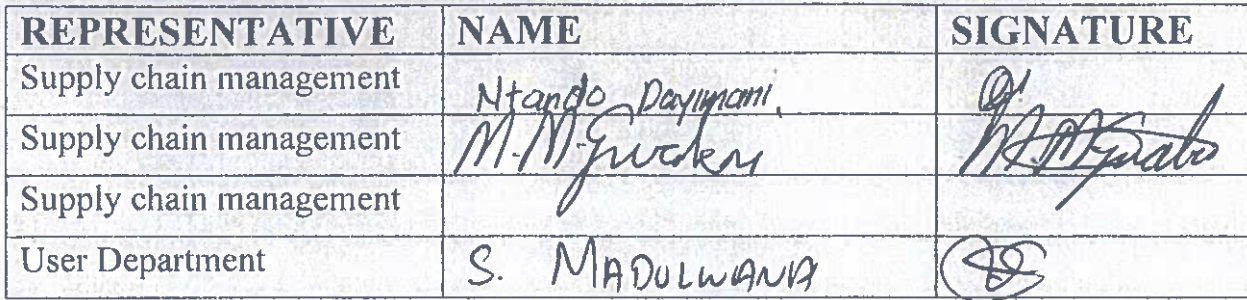 REPRESENTATIVE NAME SIGNATURE
Supply chain management Ntando Dayimani.
Supply chain management M.M.
Supply chain management
User Department S. MADULWANA